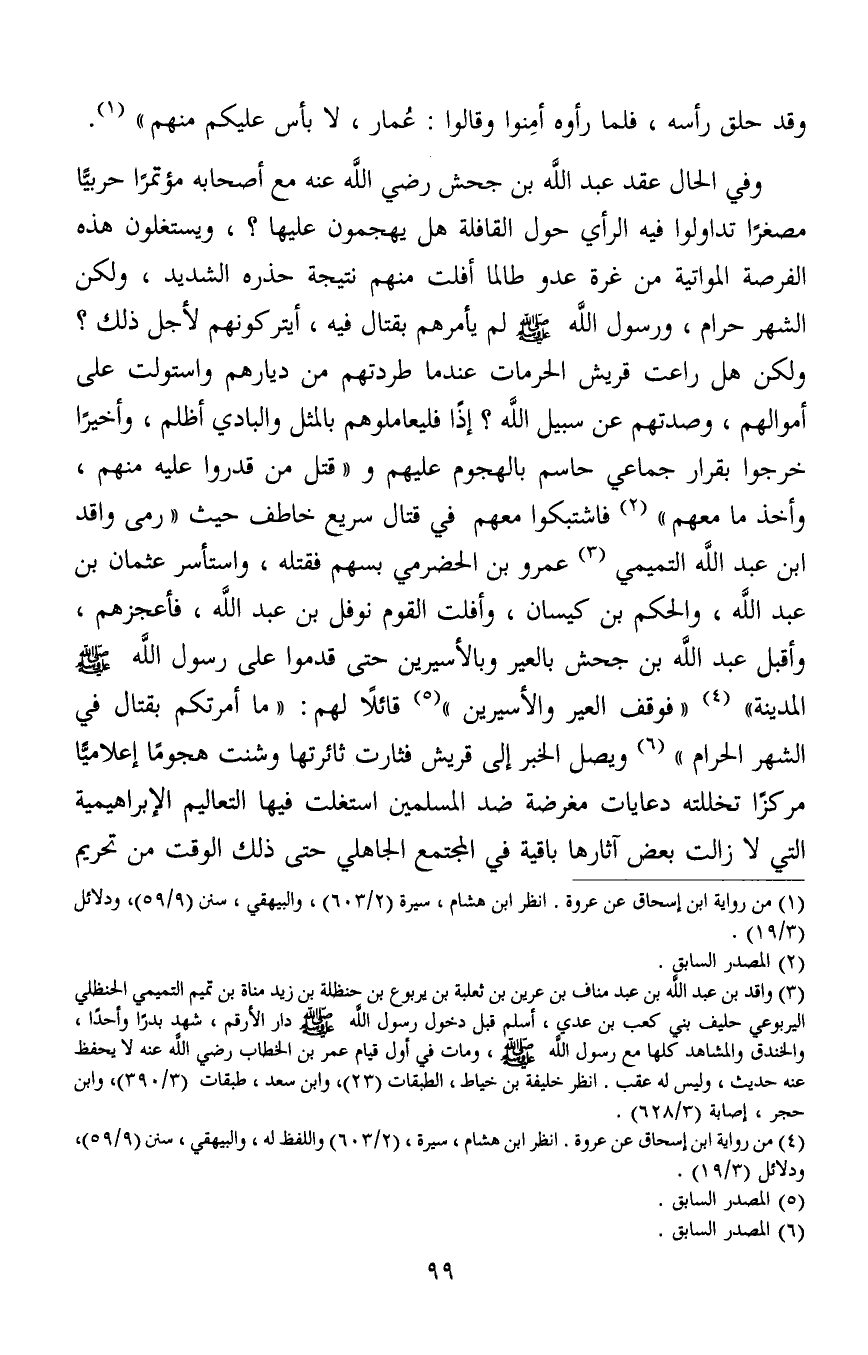 وقد حلق رأسه ، فلما رأوه أمِنوا وقالوا : عُمار ، لا بأس عليكم منهم » (١).
وفي الحال عقد عبد اللَّه بن جحش رضي اللَّه عنه مع أصحابه مؤتمرًا حربيًّا
مصغرًا تداولوا فيه الرأي حول القافلة هل يهجمون عليها ؟ ، ويستغلون هذه
الفرصة المواتية من غرة عدو طالما أفلت منهم نتيجة حذره الشديد ، ولكن
الشهر حرام ، ورسول اللَّه ﷺ لم يأمرهم بقتال فيه ، أيتركونهم لأجل ذلك ؟
ولكن هل راعت قريش الحرمات عندما طردتهم من ديارهم واستولت على
أموالهم ، وصدتهم عن سبيل اللَّه ؟ إذًا فليعاملوهم بالمثل والبادي أظلم ، وأخيرًا
خرجوا بقرار جماعي حاسم بالهجوم عليهم و « قتل من قدروا عليه منهم ،
وأخذ ما معهم » (٢) فاشتبكوا معهم في قتال سريع خاطف حيث « رمى واقد
ابن عبد اللَّه التميمي (٣) عمرو بن الحضرمي بسهم فقتله ، واستأسر عثمان بن
عبد اللَّه ، والحكم بن كيسان ، وأفلت القوم نوفل بن عبد اللَّه ، فأعجزهم ،
وأقبل عبد اللَّه بن جحش بالعير وبالأسيرين حتى قدموا على رسول اللَّه ﷺ
المدينة» (٤) « فوقف العير والأسيرين »(٥) قائلًا لهم : « ما أمرتكم بقتال في
الشهر الحرام » (٦) ويصل الخبر إلى قريش فثارت ثائرتها وشنت هجومًا إعلاميًّا
مركزًا تخللته دعايات مغرضة ضد المسلمين استغلت فيها التعاليم الإبراهيمية
التي لا زالت بعض آثارها باقية في المجتمع الجاهلي حتى ذلك الوقت من تحريم
(١) من رواية ابن إسحاق عن عروة . انظر ابن هشام ، سيرة (٦٠٣/٢) ، والبيهقي ، سنن (٥٩/٩)، ودلائل
(١٩/٣) .
(٢) المصدر السابق .
(٣) واقد بن عبد اللَّه بن عبد مناف بن عرين بن ثعلبة بن يربوع بن حنظلة بن زيد مناة بن تميم التميمي الحنظلي
اليربوعي حليف بني كعب بن عدي ، أسلم قبل دخول رسول اللَّه ﷺ دار الأرقم ، شهد بدرًا وأحدًا ،
والخندق والمشاهد كلها مع رسول اللَّه ﷺ ، ومات في أول قيام عمر بن الخطاب رضي اللَّه عنه لا يحفظ
عنه حديث ، وليس له عقب . انظر خليفة بن خياط ، الطبقات (٢٣)، وابن سعد ، طبقات (٣٩٠/٣)، وابن
حجر ، إصابة (٦٢٨/٣) .
(٤) من رواية ابن إسحاق عن عروة . انظر ابن هشام ، سيرة ، (٦٠٣/٢) واللفظ له ، والبيهقي ، سنن (٥٩/٩)،
ودلائل (١٩/٣) .
(٥) المصدر السابق .
(٦) المصدر السابق .
٩٩